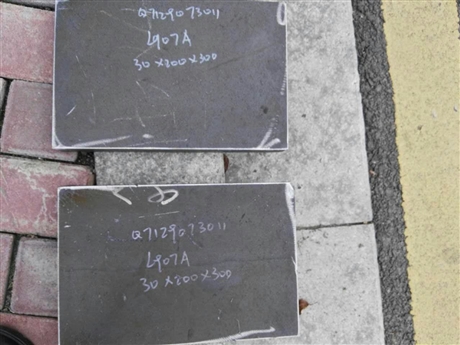 Q7129073011
L907A
30×200×300
Q7129073011
L907A
30×200×300